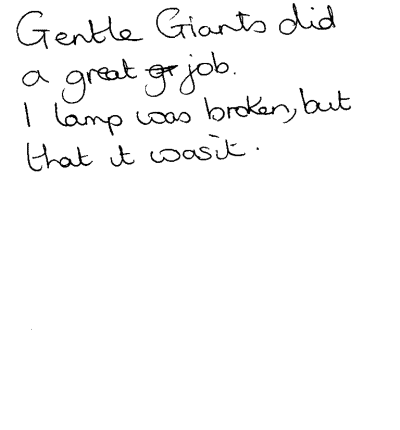 Gentle Giants did
a great gr job.
1 lamp was broken, but
that it was it.